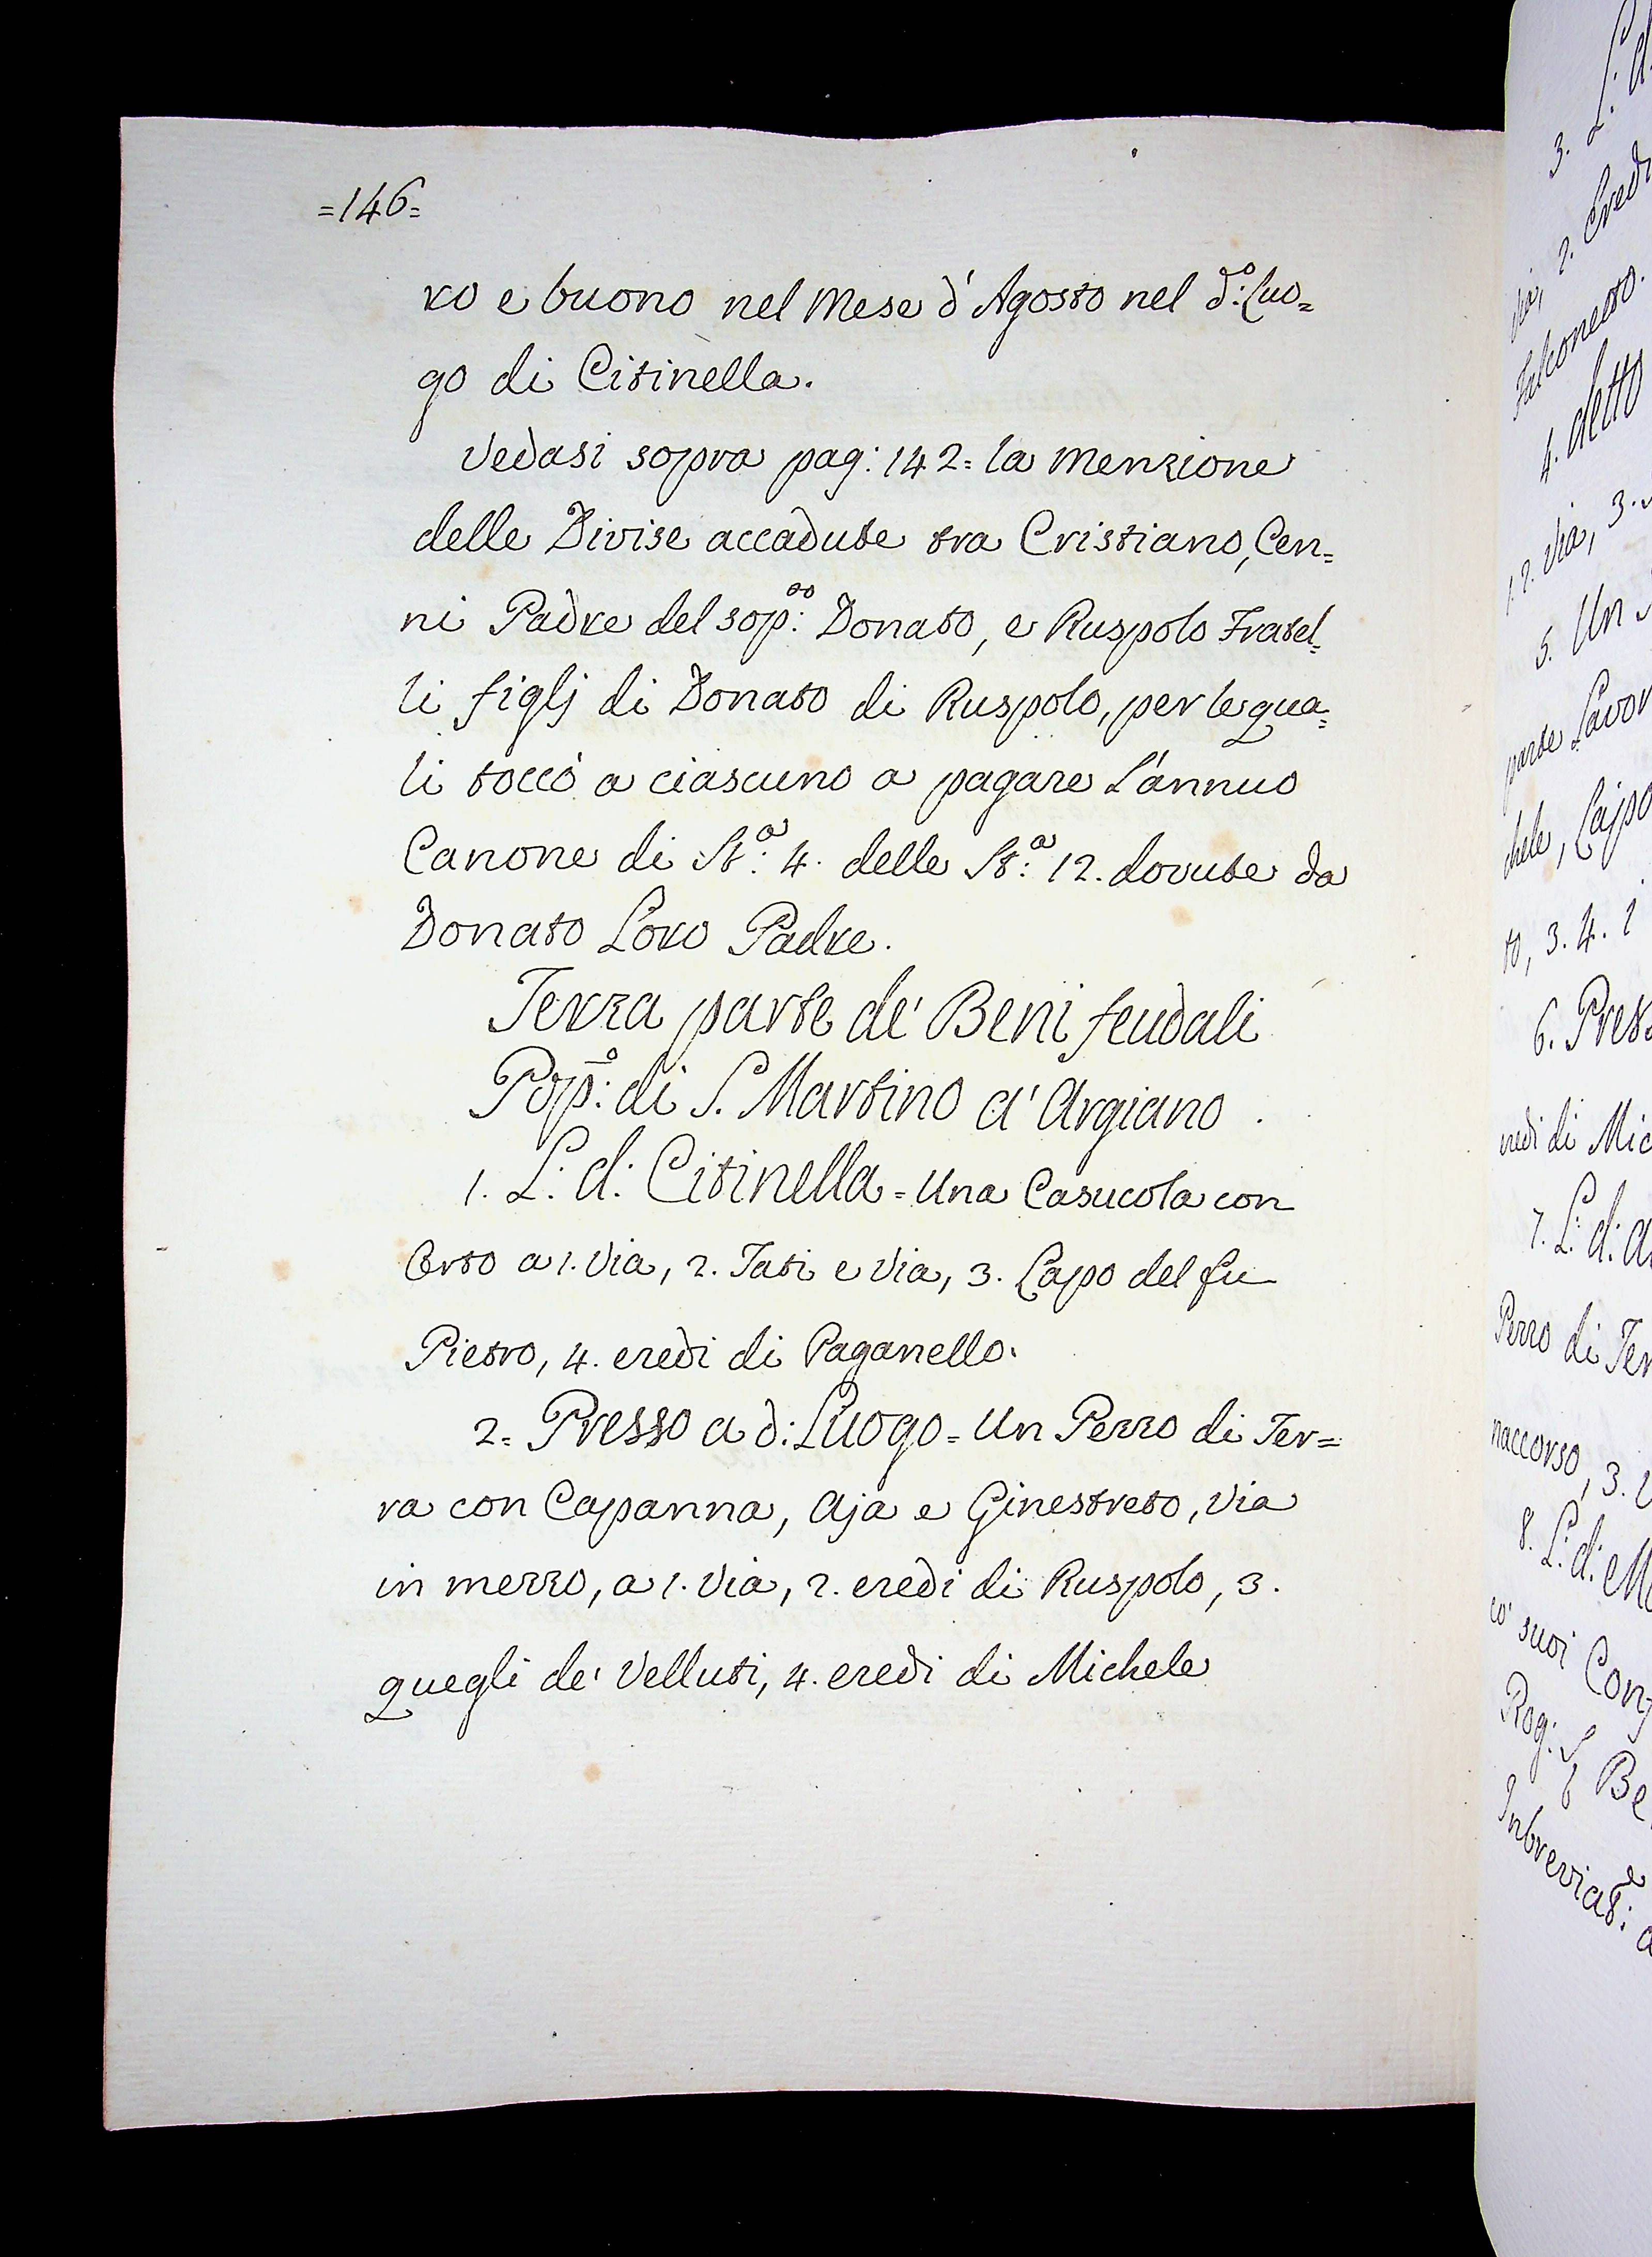 =146=
ro e buono nel Mese d'Agosto nel d.º: Luo=
go di Citinella.
Vedasi sopra pag: 142= la Menzione
delle Divise accadute tra Cristiano, Cen=
ni Padre del sop:ºº Donato, e Ruspolo Fratel=
li figlj di Donato di Ruspolo, per le qua=
li toccò a ciascuno a pagare L'annuo
Canone di St:ª 4. delle St:ª 12. dovute da
Donato Loro Padre.
Terza parte de' Beni feudali
Pop:º di S. Martino a' Argiano.
1. L: d: Citinella = Una Casucola con
Orto a 1. Via, 2. Tati e Via, 3. Lapo del fu
Pietro, 4. eredi di Paganello.
2= Presso a d: Luogo = Un Pezzo di Ter=
ra con Capanna, Aja e Ginestreto, Via
in mezzo, a 1. Via, 2. eredi di Ruspolo, 3.
quegli de' Velluti, 4. eredi di Michele
3. L: d:
2. Eredi
Falconetto.
4. detto
12. Via, 3.
5. Un
parte Lavor
chele, Lapo
to, 3. 4. i
6. Press
eredi di Mic
7. L: d: a
Pezzo di Ter
naccorso, 3. V
8. L: d: M
co' suoi Conf
Rog: S Be
Inbreviat:e a